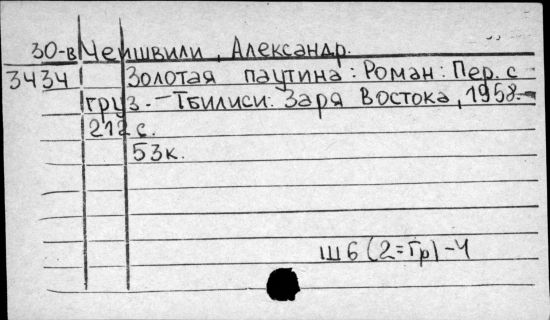 30-в Чеишвили, Александр.
3434 Золотая паутина: Роман: Пер. с
груз. - Тбилиси: Заря Востока, 1958.-
212 с.
53к.
Ш6(2=Гр)-4